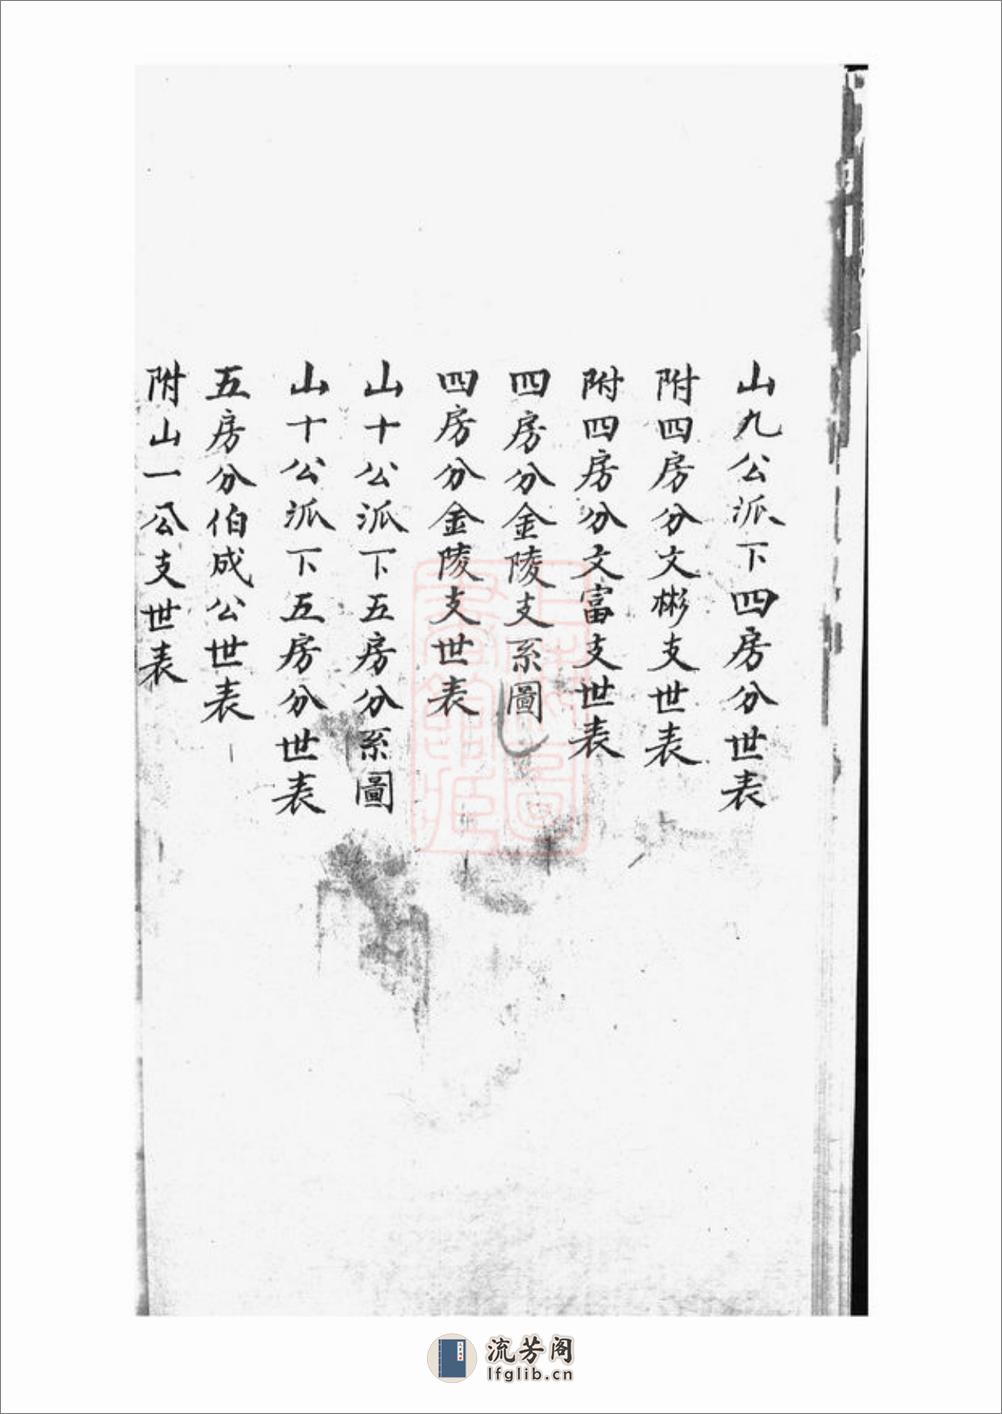 山九公派下四房分世表
附四房分文彬支世表
附四房分文富支世表
四房分金陵支系圖
四房分金陵支世表
山十公派下五房分系圖
山十公派下五房分世表
五房分伯成公世表
附山一公支世表
流芳阁
lfglib.cn